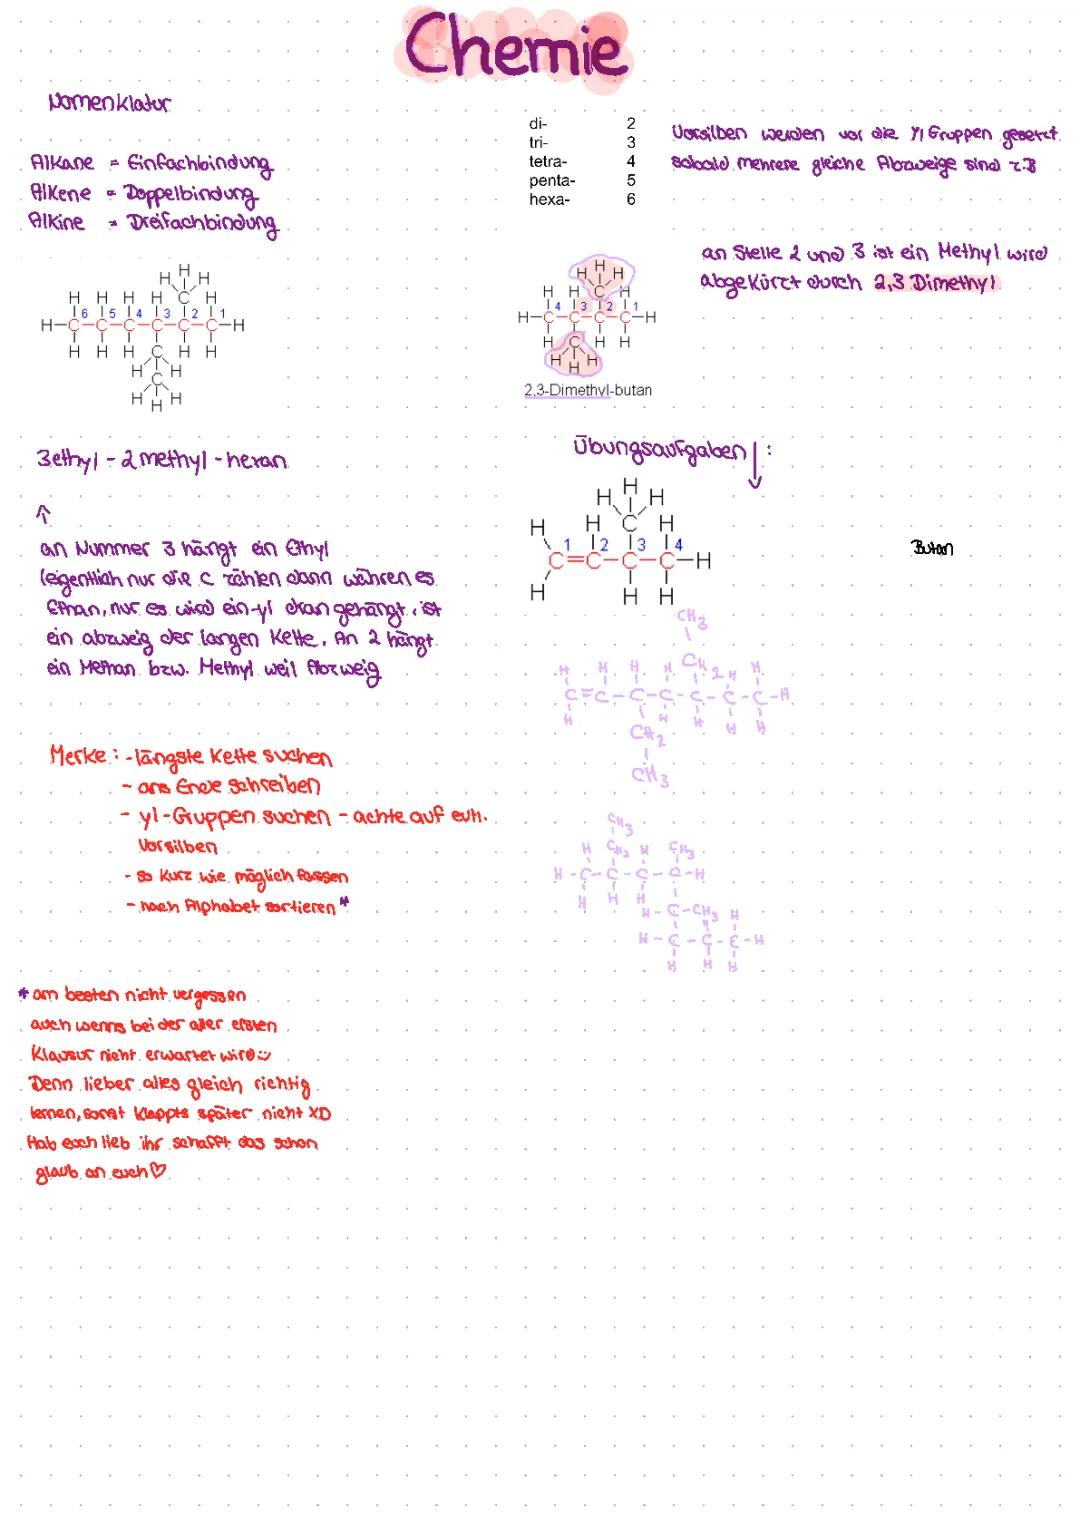 Chemie
Nomenklatur
Alkane = Einfachbindung
Alkene = Doppelbindung
Alkine = Dreifachbindung
di- 2
tri- 3
tetra- 4
penta- 5
hexa- 6
Vorsilben werden vor die yl Gruppen gesetzt
sobald mehrere gleiche Abzweige sind z.B
an Stelle 2 und 3 ist ein Methyl wird
abgekürzt durch 2,3 Dimethyl
H
H H
H H H H C H
6 5 4 3 2 1
H-C-C-C-C-C-C-H
H H H C H H
H H
C
H H
H
H
H H
H H C H
4 3 2 1
H-C-C-C-C-H
H C H H
H H
H
2,3-Dimethyl-butan
3ethyl - 2methyl - hexan
↑
an Nummer 3 hängt ein Ethyl
(eigentlich nur die C zählen dann währen es
Ethan, nur es wird ein -yl dran gehängt, ist
ein abzweig der langen Kette. An 2 hängt
ein Methan bzw. Methyl weil Abzweig
Übungsaufgaben ↓:
H
H H
H H C H
1 2 3 4
C=C-C-C-H
H H H
Butan
CH3
H H H H CH2 H H
C=C-C-C-C-C-C-H
H H H H H
CH2
CH3
Merke: - längste Kette suchen
- ans Ende schreiben
- yl-Gruppen suchen - achte auf evtl.
Vorsilben
- so kurz wie möglich fassen
- nach Alphabet sortieren *
CH3
H CH2 H CH3
H-C-C-C-C-H
H H H
H-C-CH3 H
H-C-C-C-H
H H H
* am besten nicht vergessen
auch wenns bei der aller ersten
Klausur nicht erwartet wird :)
Denn lieber alles gleich richtig
lernen, sonst klappts später nicht XD
Hab euch lieb ihr schafft das schon
glaub an euch ♡